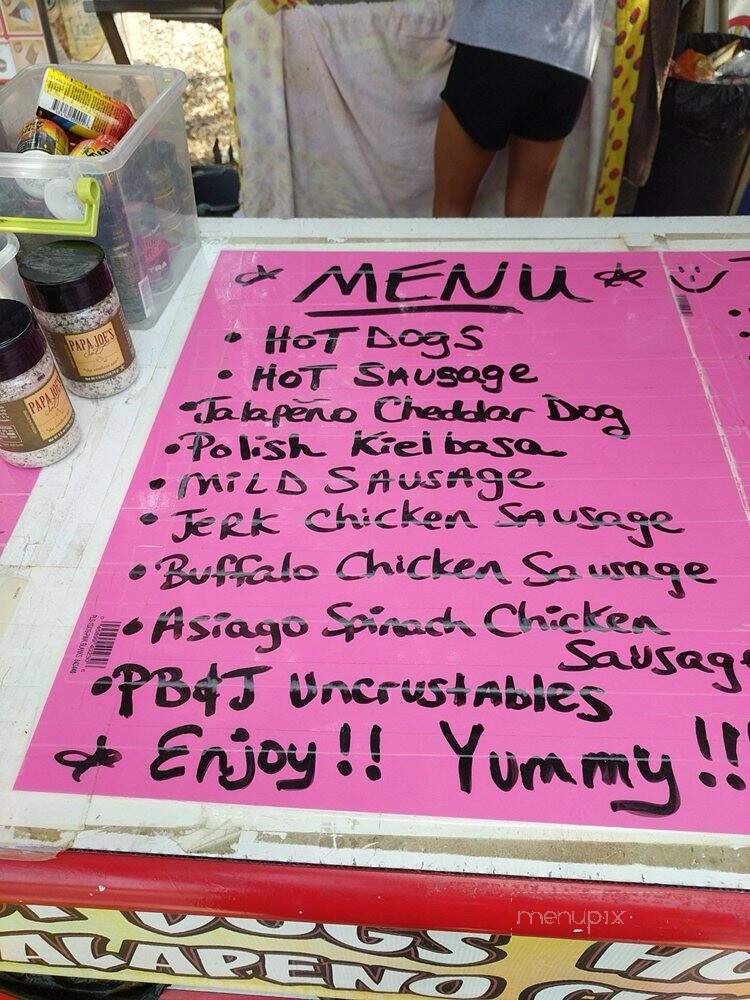 MENU
• HOT DOGS
• HOT SAUSAGE
• Jalapeño Cheddar Dog
• Polish Kielbasa
• MILD SAUSAGE
• JERK Chicken SAUSAGE
• Buffalo Chicken Sausage
• Asiago Spinach Chicken
Sausag
• PB&J Uncrustables
Enjoy!! Yummy!!!
PAPA JOE'S
PAPA JOE'S
menupix
DOGS HO
ALAPENO